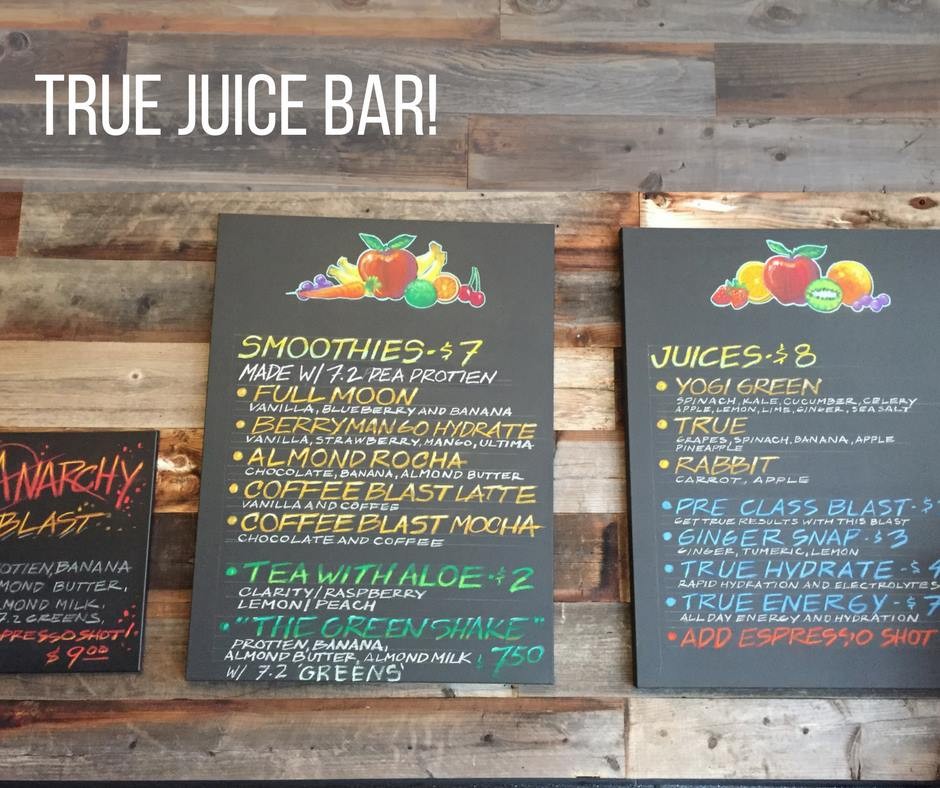 TRUE JUICE BAR!
ANARCHY
BLAST
BANANA
ALMOND BUTTER,
ALMOND MILK,
7.2 GREENS,
ESPRESSO SHOT!
$9.00
SMOOTHIES-$7
MADE W/ 7.2 PEA PROTIEN
• FULL MOON
VANILLA, BLUEBERRY AND BANANA
• BERRYMANGO HYDRATE
VANILLA, STRAWBERRY, MANGO, ULTIMA
• ALMOND ROCHA
CHOCOLATE, BANANA, ALMOND BUTTER
• COFFEE BLAST LATTE
VANILLA AND COFFEE
• COFFEE BLAST MOCHA
CHOCOLATE AND COFFEE
• TEA WITH ALOE-$2
CLARITY/RASPBERRY
LEMON/PEACH
• "THE GREEN SHAKE"
PROTIEN, BANANA,
ALMOND BUTTER, ALMOND MILK $750
W/ 7.2 'GREENS'
JUICES-$8
• YOGI GREEN
SPINACH, KALE, CUCUMBER, CELERY
APPLE, LEMON, LIME, GINGER, SEA SALT
• TRUE
GRAPES, SPINACH, BANANA, APPLE
PINEAPPLE
• RABBIT
CARROT, APPLE
• PRE CLASS BLAST-$
GET TRUE RESULTS WITH THIS BLAST
• GINGER SNAP-$3
GINGER, TUMERIC, LEMON
• TRUE HYDRATE-$4
RAPID HYDRATION AND ELECTROLYTES
• TRUE ENERGY-$7
ALL DAY ENERGY AND HYDRATION
• ADD ESPRESSO SHOT